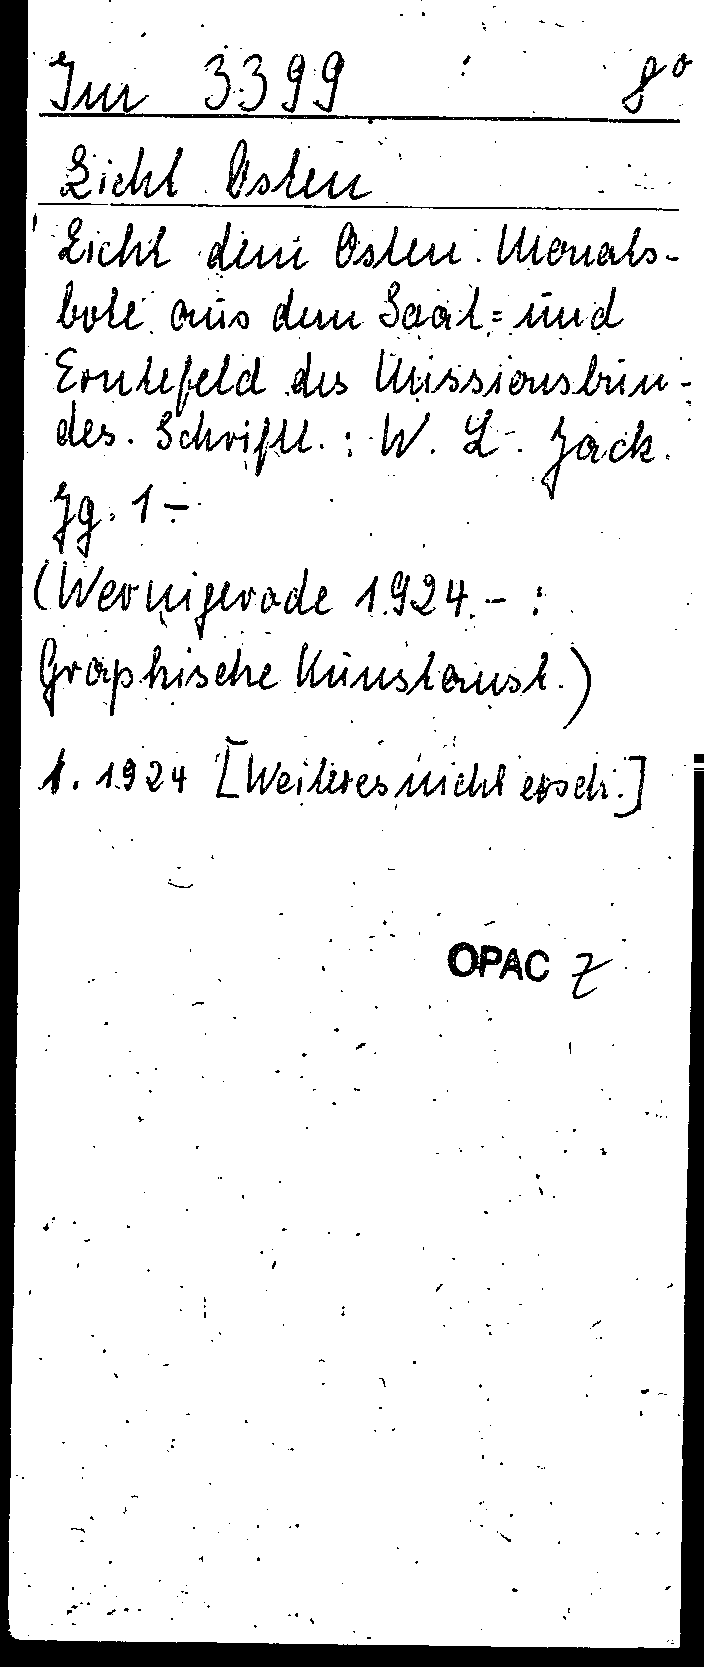 Jm 3399 8°
Licht Osten
Licht dem Osten. Monats-
bote aus dem Saat= und
Erntefeld des Missionsbun-
des. Schriftl.: W. L. Jack.
Jg. 1-
(Wernigerode 1924.- :
Graphische Kunstanst.)
1. 1924 [Weiteres nicht ersch.]
OPAC Z